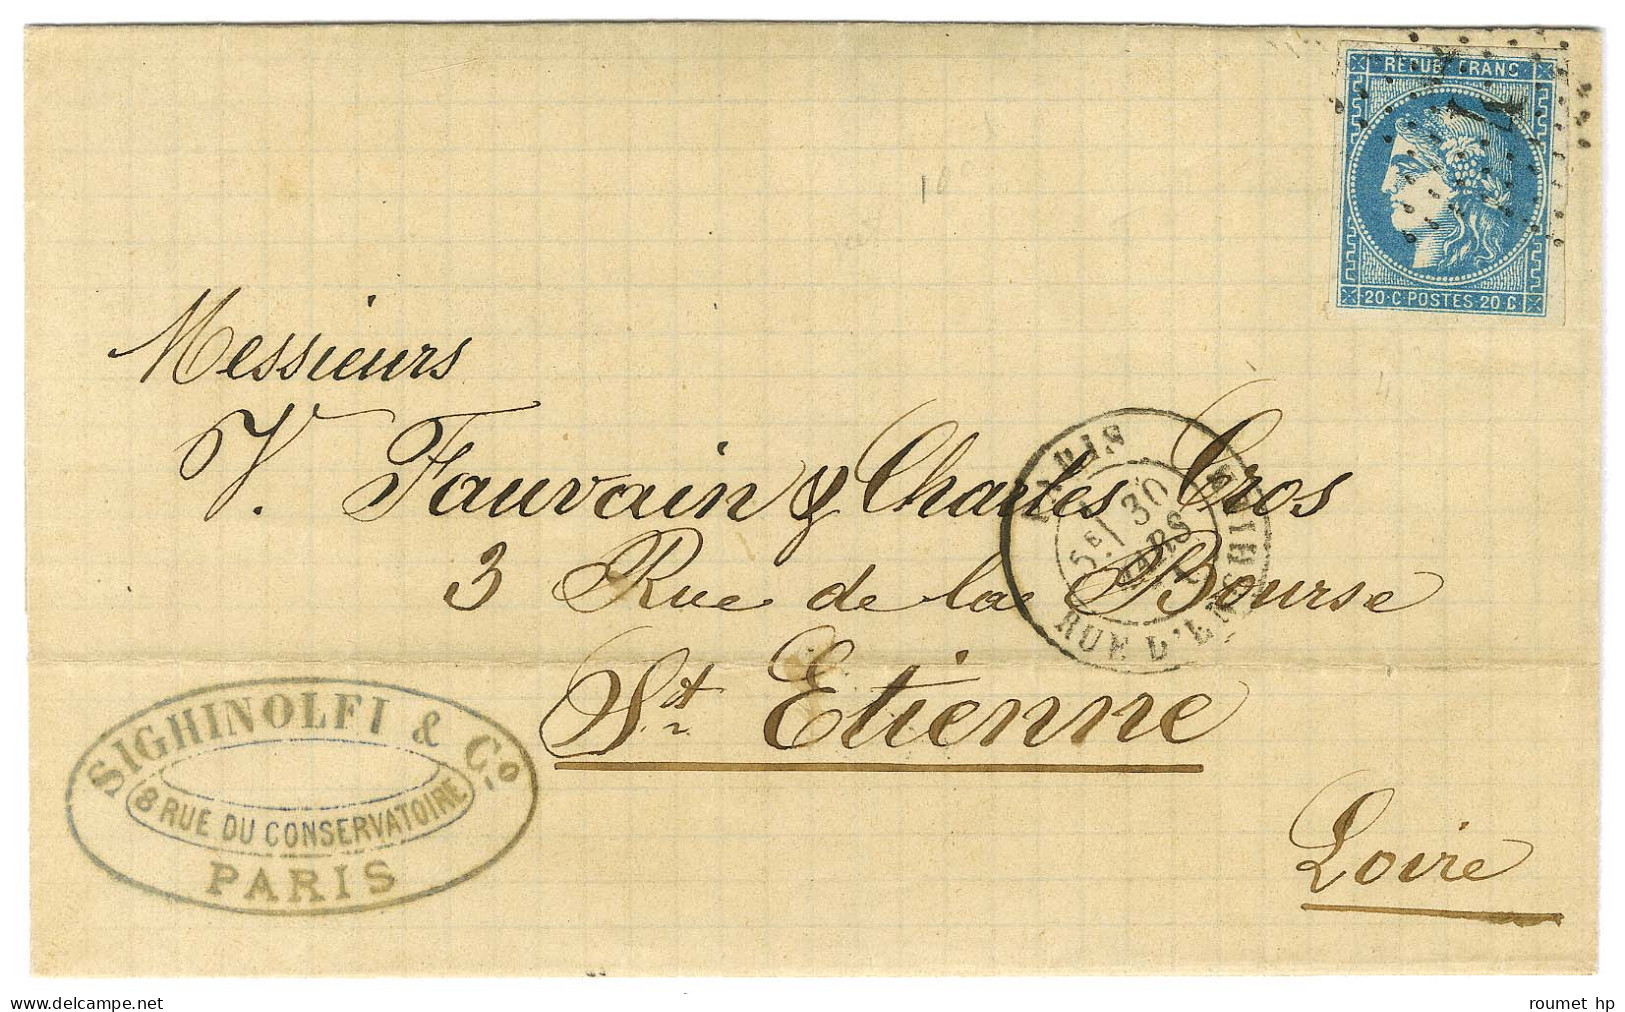 REPUB FRANC
20·C·POSTES·20·C
Messieurs
V. Fauvain & Charles Cros
3 Rue de la Bourse
St Etienne
Loire
PARIS
5E 30
MARS
RUE D'ENGHIEN
SIGHINOLFI & Co
8 RUE DU CONSERVATOIRE
PARIS
roumet hp